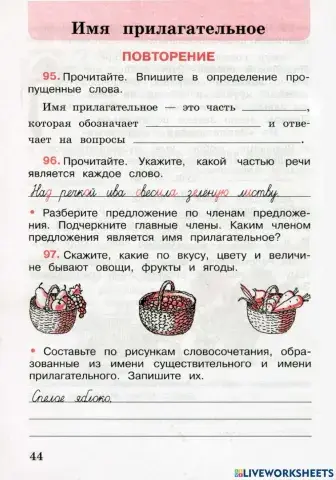 Имя прилагательное
ПОВТОРЕНИЕ
95. Прочитайте. Впишите в определение про-
пущенные слова.
Имя прилагательное — это часть ________,
которая обозначает ________ и отве-
чает на вопросы ________.
96. Прочитайте. Укажите, какой частью речи
является каждое слово.
Над речкой ива свесила зеленую листву.
• Разберите предложение по членам предложе-
ния. Подчеркните главные члены. Каким членом
предложения является имя прилагательное?
97. Скажите, какие по вкусу, цвету и величи-
не бывают овощи, фрукты и ягоды.
• Составьте по рисункам словосочетания, обра-
зованные из имени существительного и имени
прилагательного. Запишите их.
Спелое яблоко,
44
LIVEWORKSHEETS